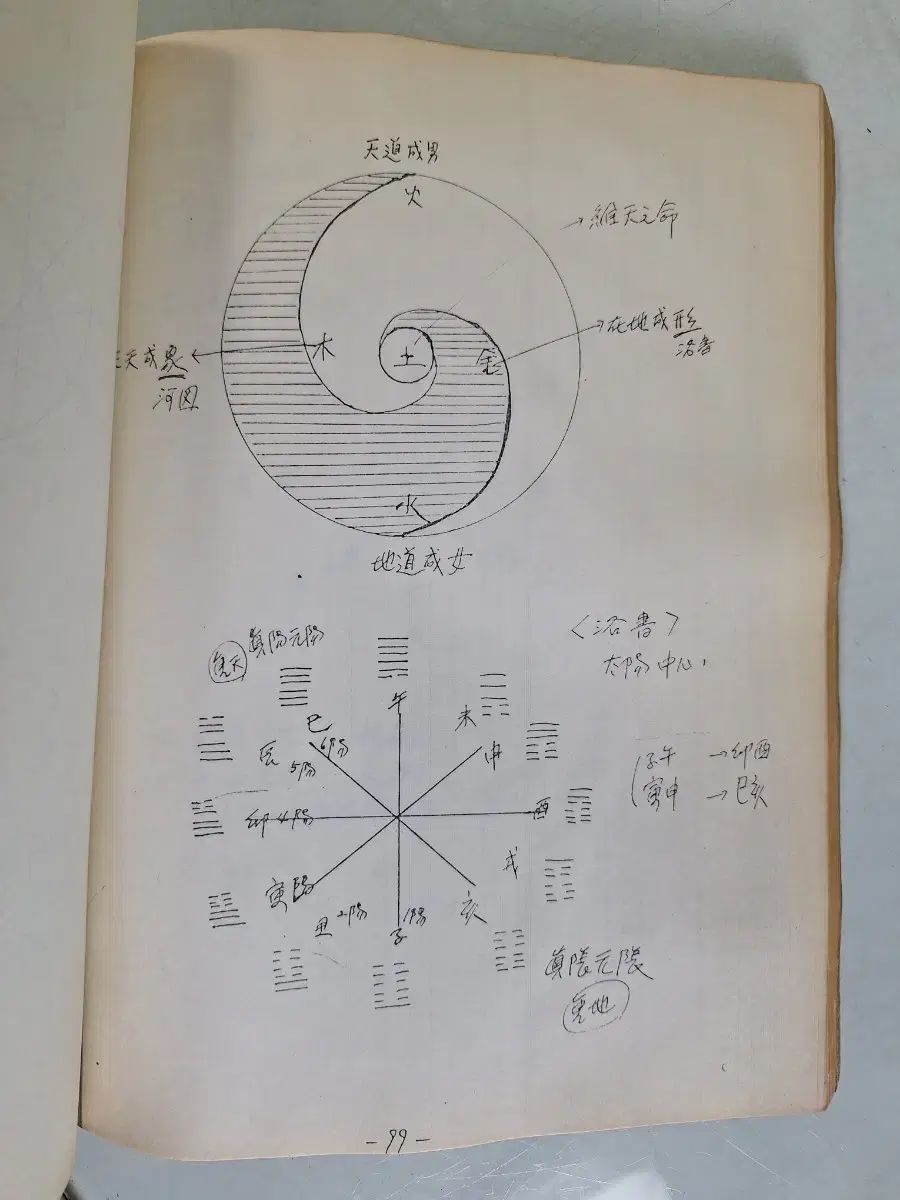 天道成男
火
→維天之命
木
土
金
→在地成形
洛書
天成象
河図
水
地道成女
真陽元陽
〈洛書〉
太陽中心
午
未
申
巳
6陽
辰
5陽
卯 4陽
酉
子午 →卯酉
寅申 →巳亥
戌
寅
陽
丑 2陽
子
1陽
亥
真陰元陰
- 99 -